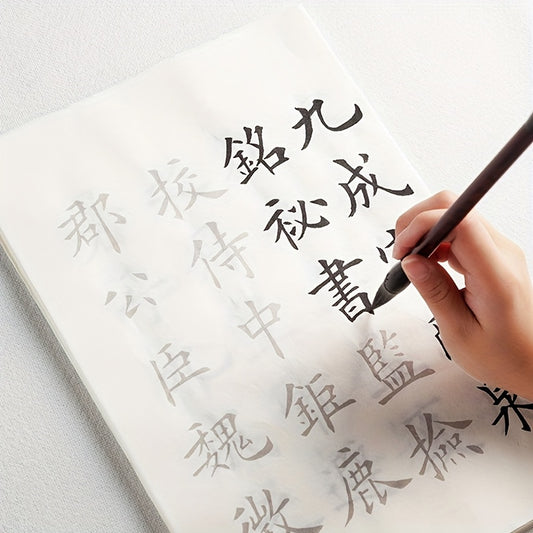 九成泉
銘祕書監撿
挍侍中鉅鹿
郡公臣魏徵